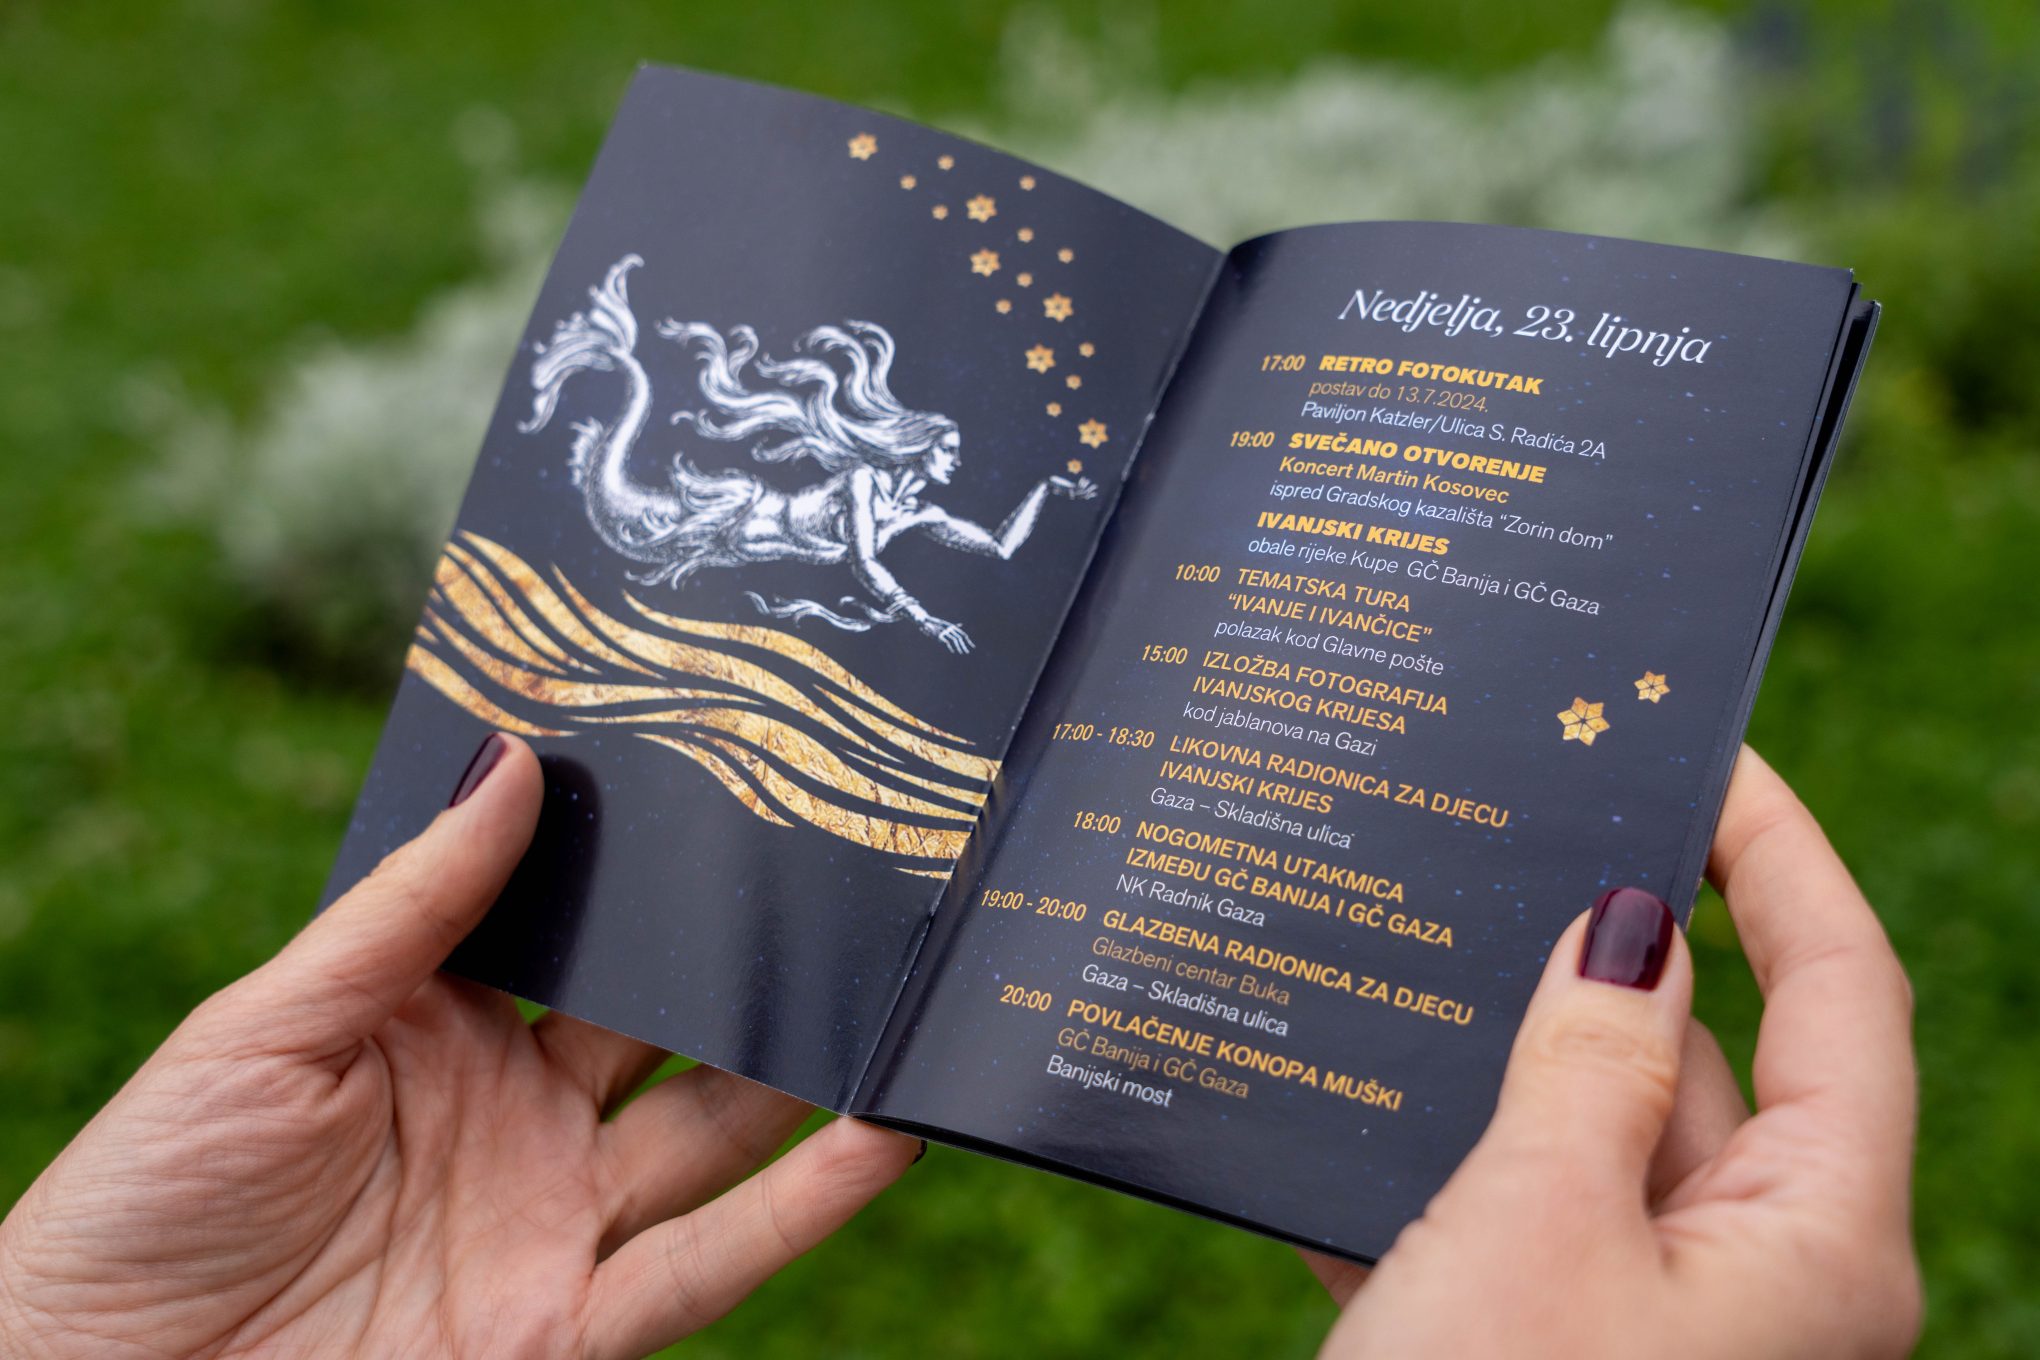 Nedjelja, 23. lipnja
17:00 RETRO FOTOKUTAK
postav do 13.7.2024.
Paviljon Katzler/Ulica S. Radića 2A
19:00 SVEČANO OTVORENJE
Koncert Martin Kosovec
ispred Gradskog kazališta “Zorin dom”
IVANJSKI KRIJES
obale rijeke Kupe GČ Banija i GČ Gaza
10:00 TEMATSKA TURA
“IVANJE I IVANČICE”
polazak kod Glavne pošte
15:00 IZLOŽBA FOTOGRAFIJA
IVANJSKOG KRIJESA
kod jablanova na Gazi
17:00 - 18:30 LIKOVNA RADIONICA ZA DJECU
IVANJSKI KRIJES
Gaza – Skladišna ulica
18:00 NOGOMETNA UTAKMICA
IZMEĐU GČ BANIJA I GČ GAZA
NK Radnik Gaza
19:00 - 20:00 GLAZBENA RADIONICA ZA DJECU
Glazbeni centar Buka
Gaza – Skladišna ulica
20:00 POVLAČENJE KONOPA MUŠKI
GČ Banija i GČ Gaza
Banijski most